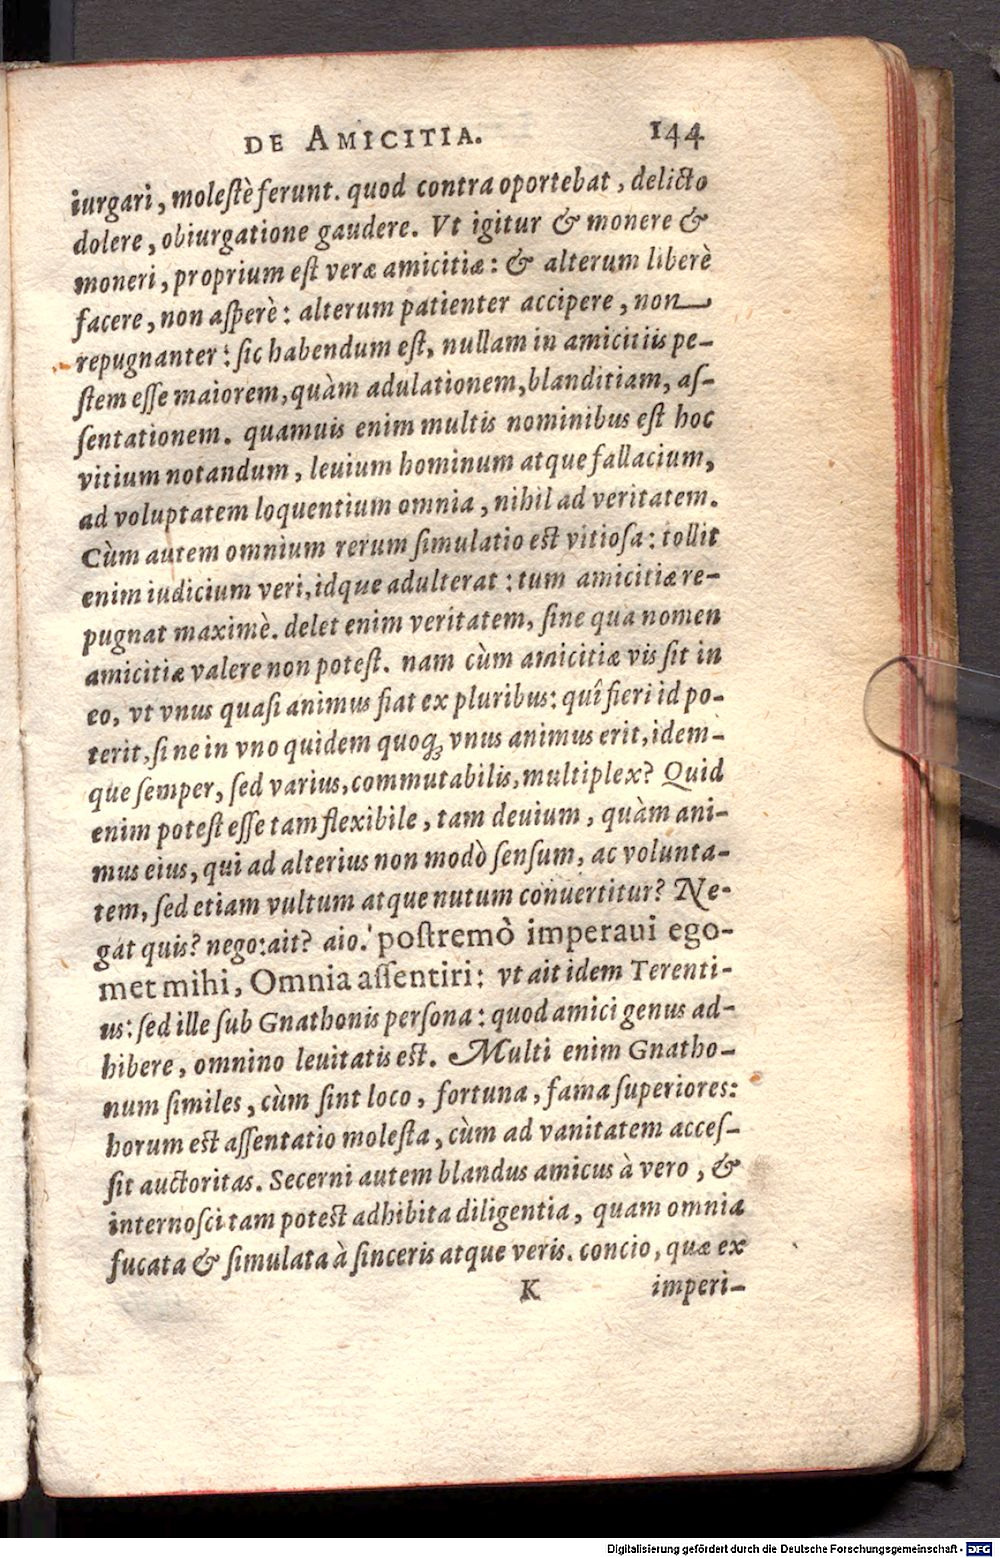 DE AMICITIA. 144
iurgari, molestè ferunt. quod contra oportebat, delicto
dolere, obiurgatione gaudere. Vt igitur & monere &
moneri, proprium est veræ amicitiæ: & alterum liberè
facere, non asperè: alterum patienter accipere, non
repugnanter: sic habendum est, nullam in amicitiis pe-
stem esse maiorem, quàm adulationem, blanditiam, as-
sentationem. quamuis enim multis nominibus est hoc
vitium notandum, leuium hominum atque fallacium,
ad voluptatem loquentium omnia, nihil ad veritatem.
Cùm autem omnium rerum simulatio est vitiosa: tollit
enim iudicium veri, idque adulterat: tum amicitiæ re-
pugnat maximè. delet enim veritatem, sine qua nomen
amicitiæ valere non potest. nam cùm amicitiæ vis sit in
eo, vt vnus quasi animus fiat ex pluribus: quî fieri id po-
terit, si ne in vno quidem quoq; vnus animus erit, idem-
que semper, sed varius, commutabilis, multiplex? Quid
enim potest esse tam flexibile, tam deuium, quàm ani-
mus eius, qui ad alterius non modò sensum, ac volunta-
tem, sed etiam vultum atque nutum conuertitur? Ne-
gat quis? nego: ait? aio. postremò imperaui ego-
met mihi, Omnia assentiri: vt ait idem Terenti-
us: sed ille sub Gnathonis persona: quod amici genus ad-
hibere, omnino leuitatis est. Multi enim Gnatho-
num similes, cùm sint loco, fortuna, fama superiores:
horum est assentatio molesta, cùm ad vanitatem acces-
sit auctoritas. Secerni autem blandus amicus à vero, &
internosci tam potest adhibita diligentia, quam omnia
fucata & simulata à sinceris atque veris. concio, quæ ex
K imperi-
Digitalisierung gefördert durch die Deutsche Forschungsgemeinschaft - DFG